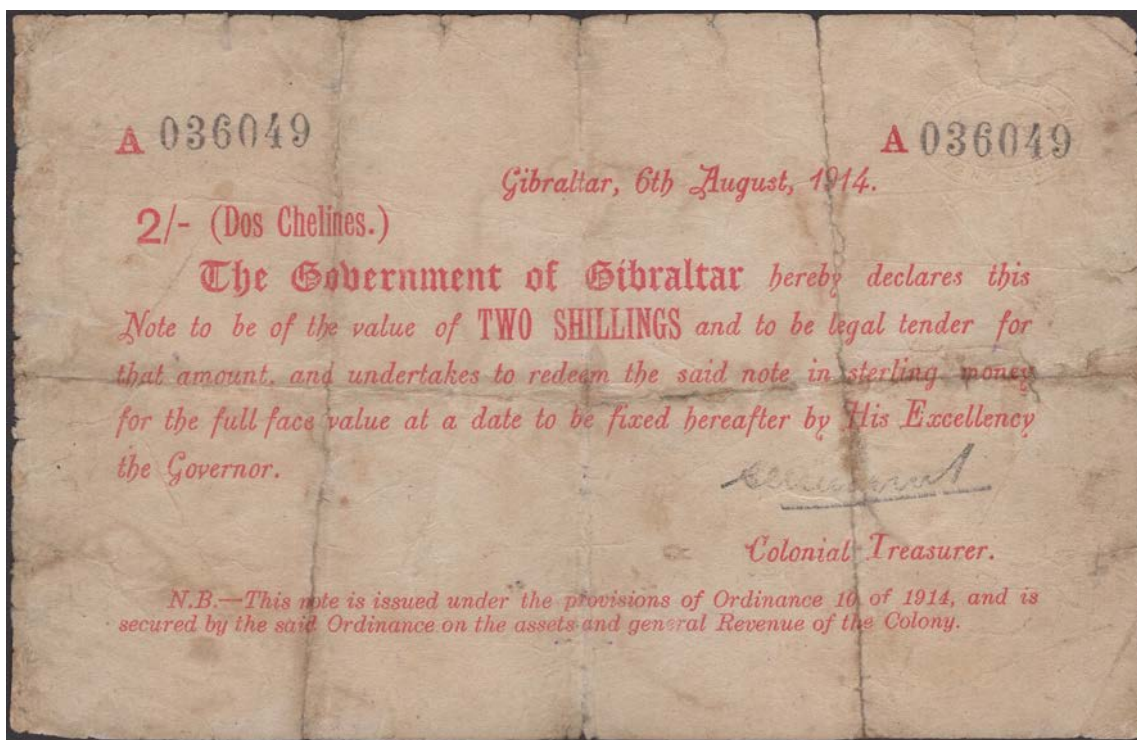 A 036049 A 036049
Gibraltar, 6th August, 1914.
2/- (Dos Chelines.)
The Government of Gibraltar hereby declares this
Note to be of the value of TWO SHILLINGS and to be legal tender for
that amount, and undertakes to redeem the said note in sterling money
for the full face value at a date to be fixed hereafter by His Excellency
the Governor.
Colonial Treasurer.
N.B.—This note is issued under the provisions of Ordinance 10 of 1914, and is
secured by the said Ordinance on the assets and general Revenue of the Colony.